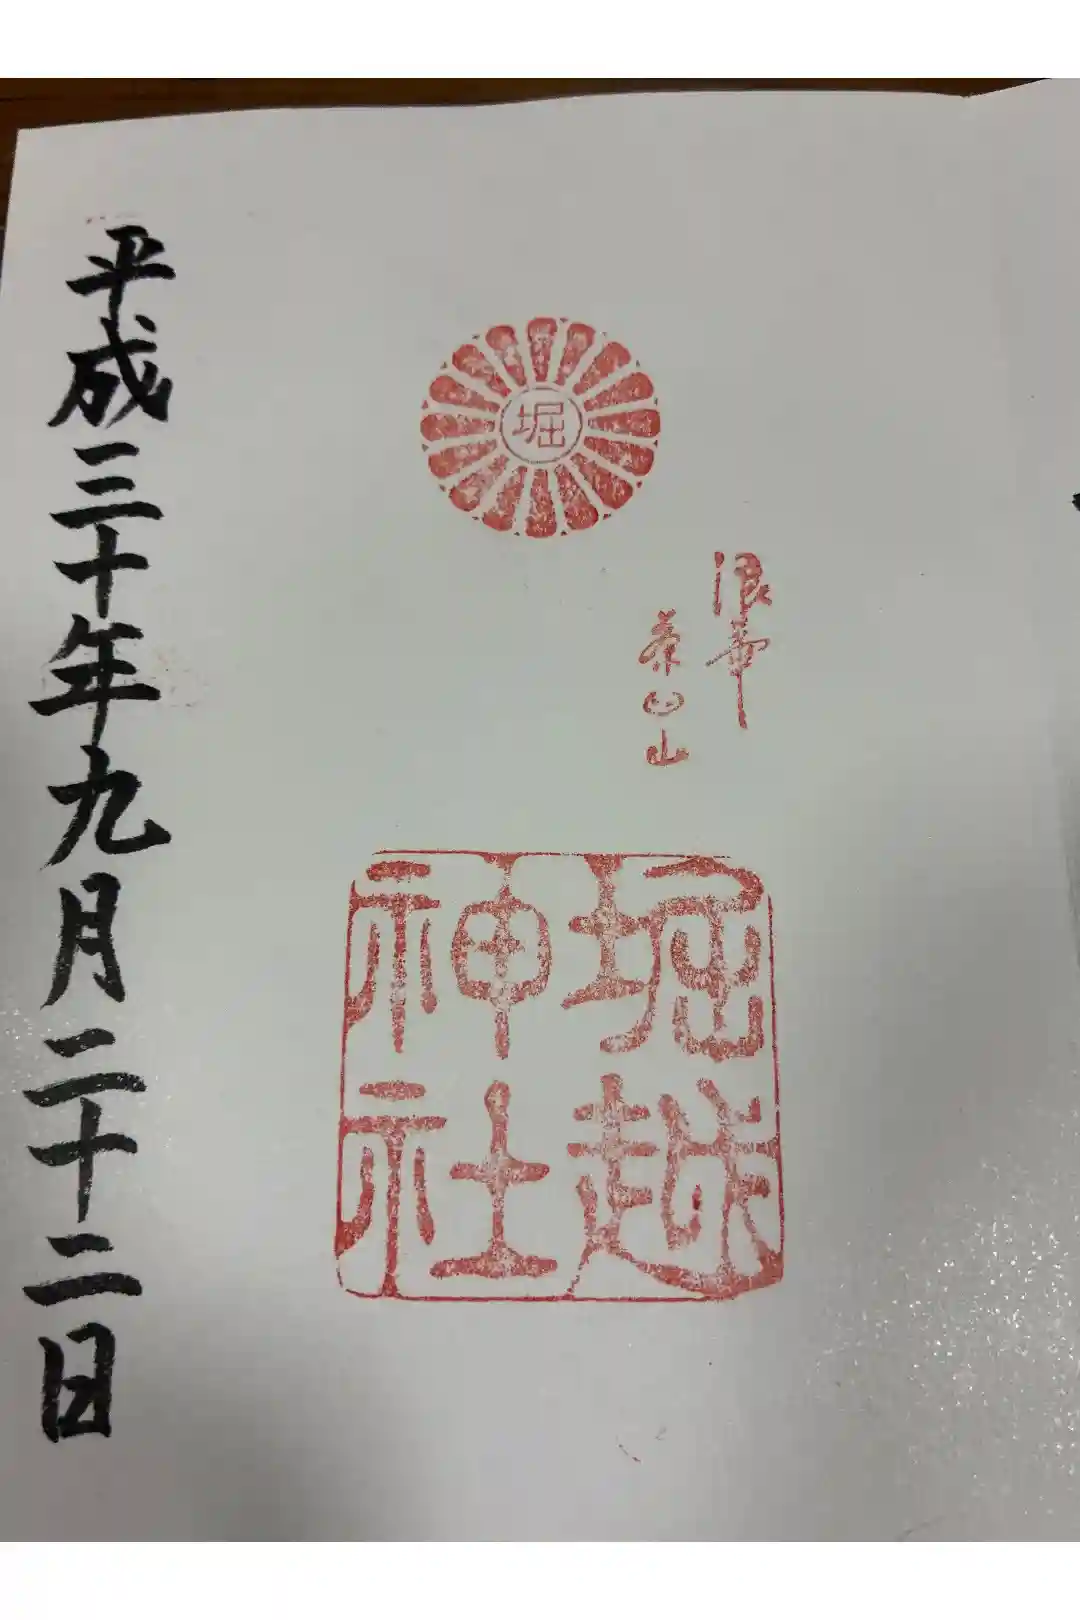 堀
浪華
茶臼山
堀越
神社
平成三十年九月二十二日